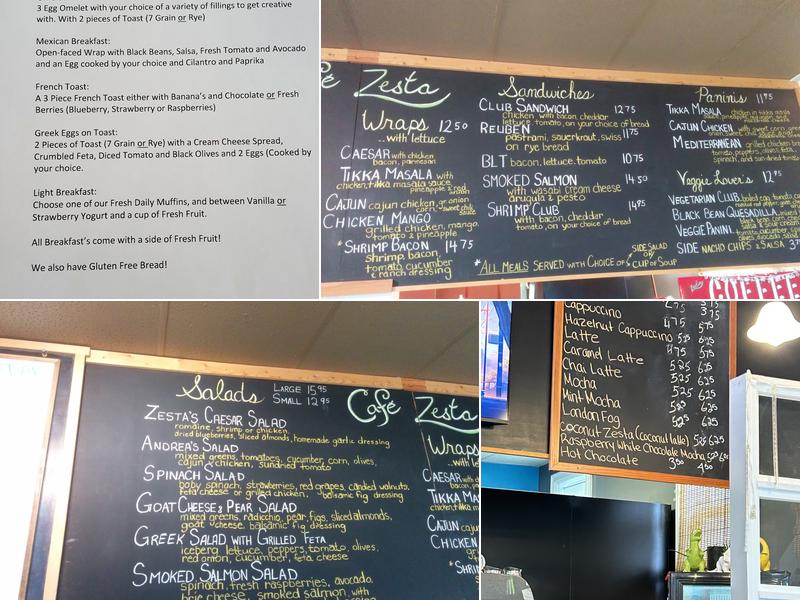 3 Egg Omelet with your choice of a variety of fillings to get creative
with. With 2 pieces of Toast (7 Grain or Rye)
Mexican Breakfast:
Open-faced Wrap with Black Beans, Salsa, Fresh Tomato and Avocado
and an Egg cooked by your choice and Cilantro and Paprika
French Toast:
A 3 Piece French Toast either with Banana's and Chocolate or Fresh
Berries (Blueberry, Strawberry or Raspberries)
Greek Eggs on Toast:
2 Pieces of Toast (7 Grain or Rye) with a Cream Cheese Spread,
Crumbled Feta, Diced Tomato and Black Olives and 2 Eggs (Cooked by
your choice.
Light Breakfast:
Choose one of our Fresh Daily Muffins, and between Vanilla or
Strawberry Yogurt and a cup of Fresh Fruit.
All Breakfast's come with a side of Fresh Fruit!
We also have Gluten Free Bread!
Zesta
Wraps 12 50
...with lettuce
CAESAR with chicken
bacon, parmesan
TIKKA MASALA with
chicken, tikka masala sauce,
pineapple & red
CAJUN cajun chicken, or onion
CHICKEN MANGO
grilled chicken, mango,
tomato & pineapple
*SHRIMP BACON 14 75
shrimp, bacon,
tomato, cucumber
& ranch dressing
Sandwiches
CLUB SANDWICH 12 75
chicken with bacon, cheddar
lettuce, tomato, on your choice of bread
REUBEN 11 75
pastrami, sauerkraut, swiss
on rye bread
BLT bacon, lettuce, tomato 10 75
SMOKED SALMON 14 50
with wasabi cream cheese
arugula & pesto
SHRIMP CLUB 14 95
with bacon, cheddar
tomato, on your choice of bread
*ALL MEALS SERVED WITH CHOICE OF SIDE SALAD
OR CUP OF SOUP
Paninis 11 95
TIKKA MASALA chicken in tikka masala
CAJUN CHICKEN with sweet corn, green
MEDITERRANEAN grilled chicken
tomato, peppers, olives, feta
spinach, and sun-dried tomato
Veggie Lover's 12 95
VEGETARIAN CLUB
BLACK BEAN QUESADILLA
VEGGIE PANINI
SIDE NACHO CHIPS & SALSA
COFFEE
Salads LARGE 15 95
SMALL 12 95
ZESTA'S CAESAR SALAD
romaine, shrimp or chicken,
dried blueberries, sliced almonds, homemade garlic dressing
ANDREA'S SALAD
mixed greens, tomatoes, cucumber, corn, olives,
cajun chicken, sundried tomato
SPINACH SALAD
baby spinach, strawberries, red grapes, candied walnuts,
feta cheese or grilled chicken, balsamic fig dressing
GOAT CHEESE & PEAR SALAD
mixed greens, radicchio, pear, figs, sliced almonds,
goat cheese, balsamic fig dressing
GREEK SALAD WITH GRILLED FETA
iceberg lettuce, peppers, tomato, olives,
red onion, cucumber, feta cheese
SMOKED SALMON SALAD
spinach, fresh raspberries, avocado,
brie cheese, smoked salmon, with
Café
Zesta
Wraps
...with le
CAESAR
TIKKA MAS
CAJUN
CHICKEN
*SHRI
Cappuccino 3 75
Hazelnut Cappuccino 4 75 5 75
Latte
Caramel Latte 4 75 5 75
Chai Latte 5 25 6 25
Mocha 5 25 6 25
Mint Mocha 5 25 6 25
London Fog
Coconut Zesta (coconut latte) 5 25 6 25
Raspberry White Chocolate Mocha
Hot Chocolate 3 50 4 50